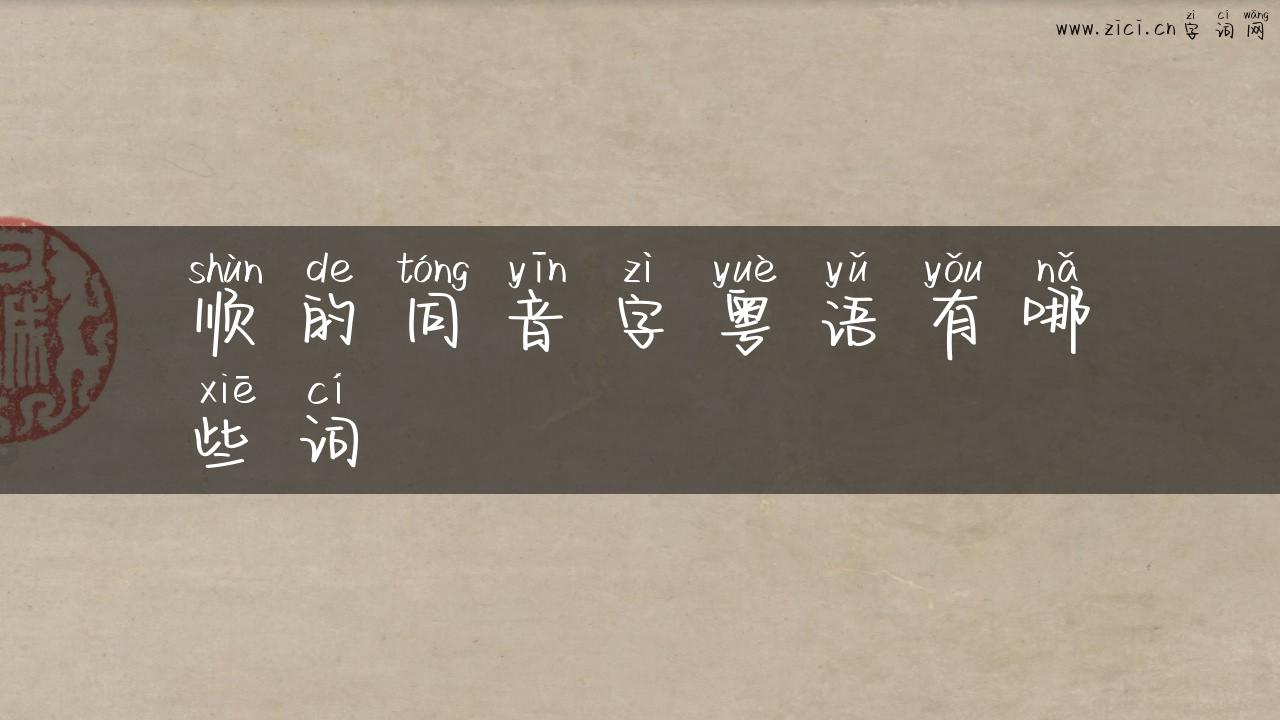 www.zici.cn字词网
zì cí wǎng
shùn de tóng yīn zì yuè yǔ yǒu nǎ
顺的同音字粤语有哪
xiē cí
些词